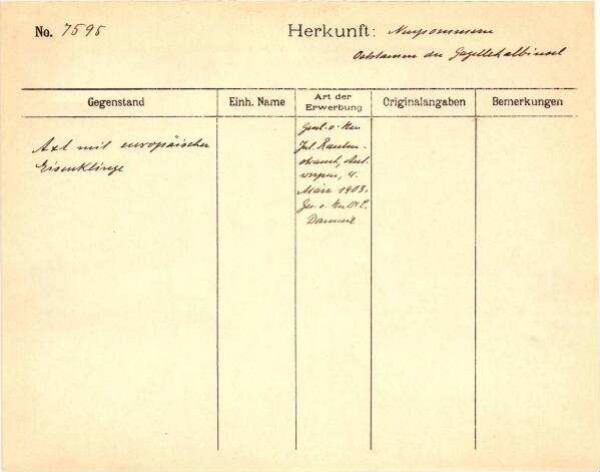 No. 7595
Herkunft: Neupommern
der Gazellehalbinsel
Gegenstand
Einh. Name
Art der
Erwerbung
Originalangaben
Bemerkungen
Axt mit europäischer
Eisenklinge
Gesch. v. Herrn
Jul. Rauten-
strauch, Ant-
werpen, 4.
März 1903.